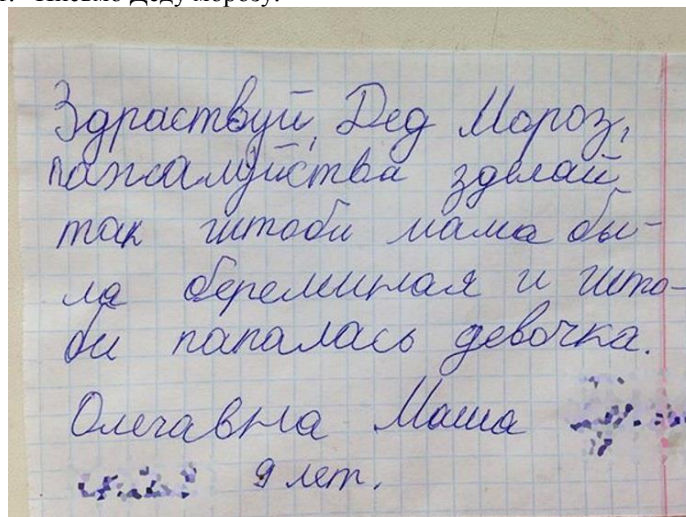 Письмо Деду морозу.
Здраствуй, Дед Мороз,
пажалуйства зделай
так штоби мама бы-
ла беременая и што-
би папалась девочка.
Олечавна Маша
9 лет.